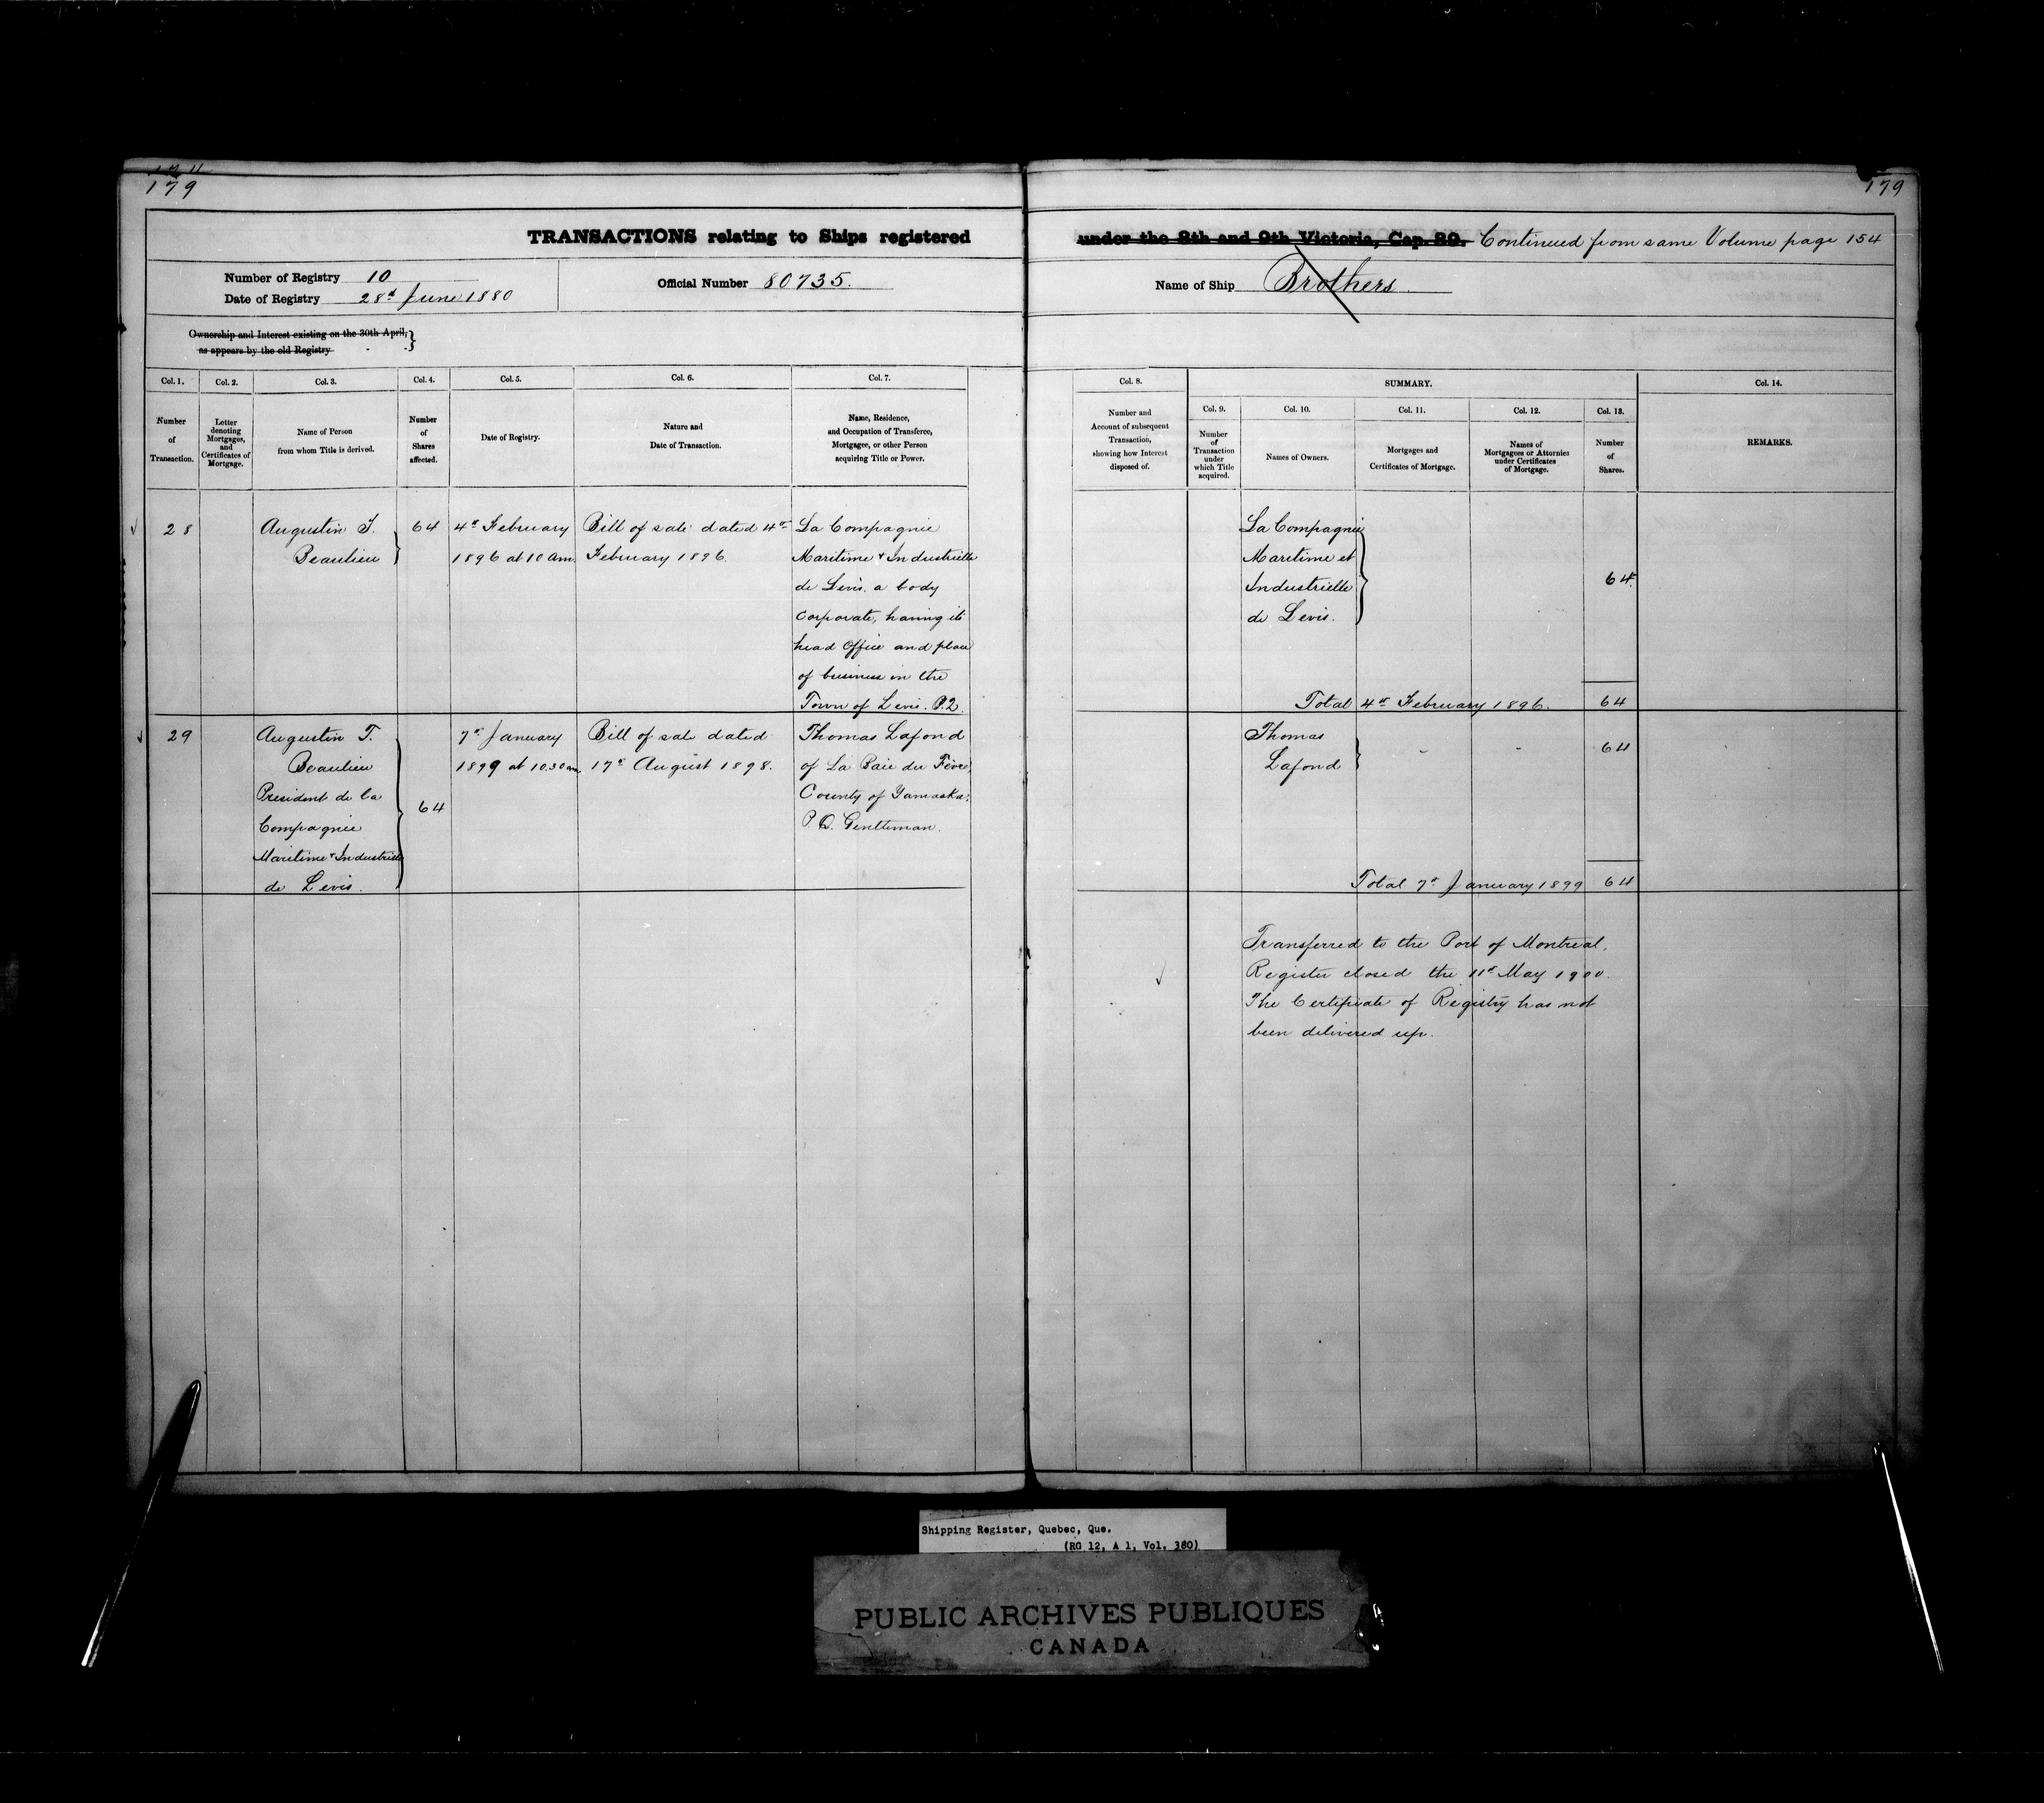 179
179
TRANSACTIONS relating to Ships registered
under the 8th and 9th Victoria, Cap. 89. Continued from same Volume page 154
Number of Registry 10
Date of Registry 28th June 1880
Official Number 80735.
Name of Ship Brothers
Ownership and Interest existing on the 30th April,
as appears by the old Registry
Col. 1.
Number
of
Transaction.
Col. 2.
Letter
denoting
Mortgages,
and
Certificates of
Mortgage.
Col. 3.
Name of Person
from whom Title is derived.
Col. 4.
Number
of
Shares
affected.
Col. 5.
Date of Registry.
Col. 6.
Nature and
Date of Transaction.
Col. 7.
Name, Residence,
and Occupation of Transferee,
Mortgagee, or other Person
acquiring Title or Power.
Col. 8.
Number and
Account of subsequent
Transaction,
showing how Interest
disposed of.
SUMMARY.
Col. 9.
Number
of
Transaction
under
which Title
acquired.
Col. 10.
Names of Owners.
Col. 11.
Mortgages and
Certificates of Mortgage.
Col. 12.
Names of
Mortgagees or Attornies
under Certificates
of Mortgage.
Col. 13.
Number
of
Shares.
Col. 14.
REMARKS.
28
Augustin T.
Beaulieu
64
4th February
1896 at 10 am.
Bill of sale dated 4th
February 1896.
La Compagnie
Maritime & Industrielle
de Levis. a body
corporate, having its
head Office and place
of business in the
Town of Levis. P.Q.
La Compagnie
Maritime et
Industrielle
de Levis.
64.
Total 4th February 1896. 64
29
Augustin T.
Beaulieu
President de la
Compagnie
Maritime & Industrielle
de Levis.
64
7th January
1899 at 10.30 am.
Bill of sale dated
17th August 1898.
Thomas Lafond
of La Baie du Febvre,
County of Yamaska.
P.Q. Gentleman.
Thomas
Lafond
64
Total 7th January 1899 64
Transferred to the Port of Montreal.
Register closed the 11th May 1900.
The Certificate of Registry has not
been delivered up.
Shipping Register, Quebec, Que.
(RG 12, A 1, Vol. 380)
PUBLIC ARCHIVES PUBLIQUES
CANADA